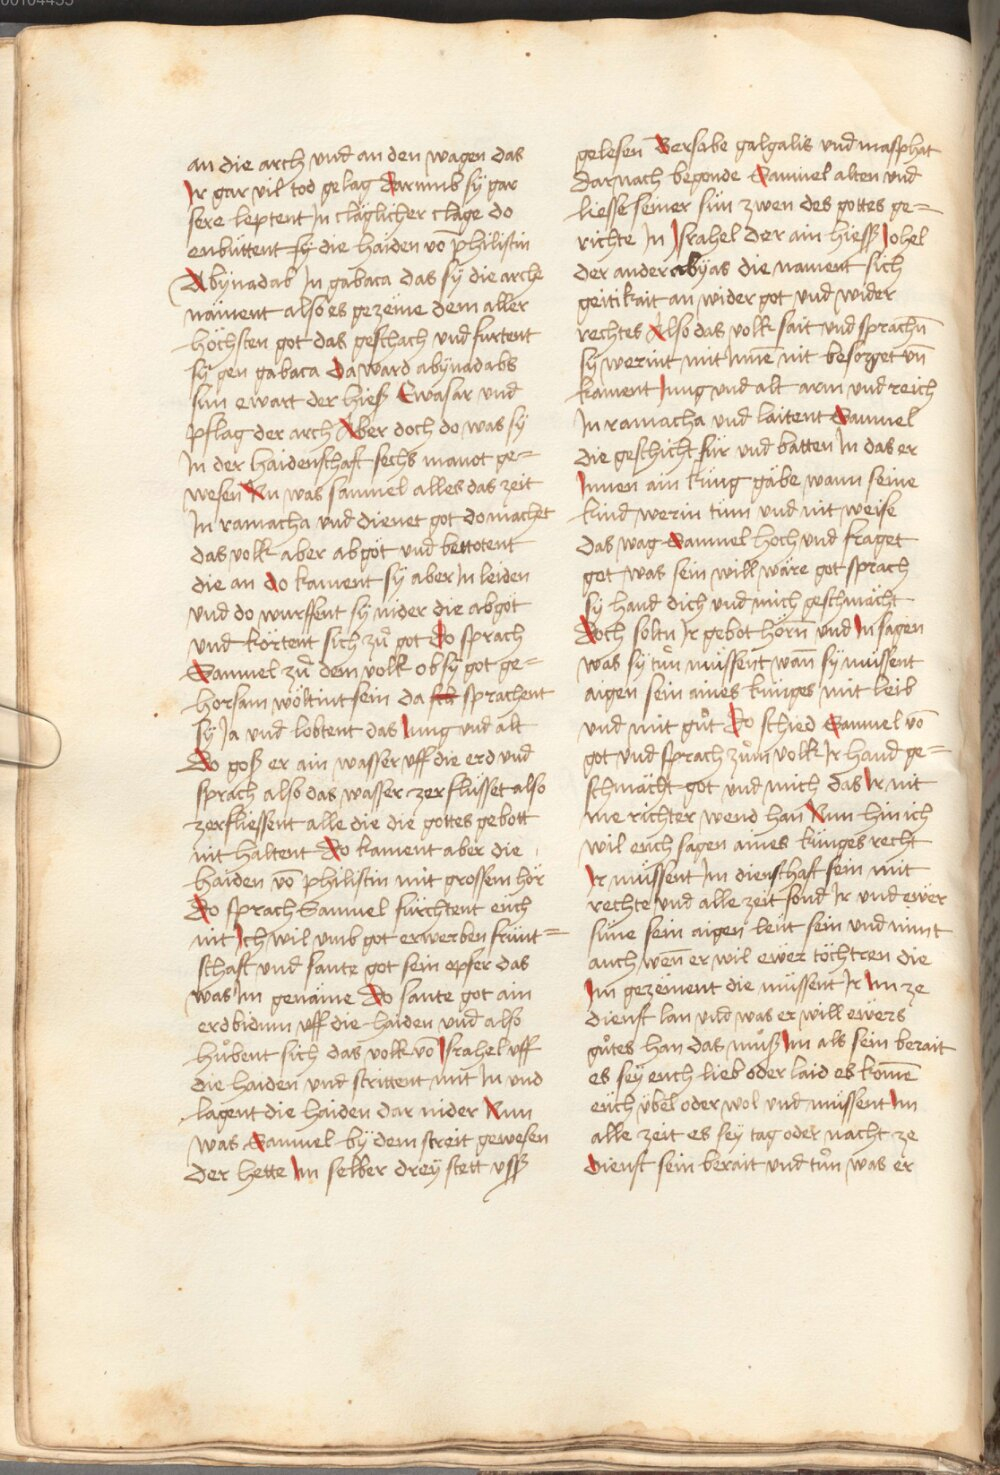 an die arch vnd an den wagen das
Ir gar vil tod gelag Darumb sÿ gar
sere leptent In cläglicher clage do
enbuttent sÿ die haiden vō philistin
Abÿnadab In gabaca das sÿ die arche
nāment also es gezeme dem aller
höchsten got das geschach vnd furtent
sÿ gen gabaca Da ward abÿnadabs
sun ewart der hieß Ewasar vnd
pflag der arch Aber doch do was sÿ
In der haidenschaft sechs manot ge=
wesen Nu was samuel alles das zeit
In ramacha vnd dienet got do machet
das volk aber abgöt vnd bettotent
die an do kament sÿ aber In leiden
vnd do wurffent sÿ nider die abgöt
vnd körtent sich zů got Do sprach
Samuel zů dem volk ob sÿ got ge=
horsam wöltint sein da sprachent
sÿ Ja vnd lobtent das Iung vnd alt
Do goß er ain wasser vff die erd vnd
sprach also das wasser zerflüsset also
zerfliessent alle die die gottes gebott
nit haltent Do kament aber die
haiden vō philistin mit grossem hör
Do sprach Samuel fürchtent eüch
nit Ich wil vmb got erwerben frünt=
schaft vnd sante got sein opfer das
was Im genäme Do sante got ain
erdbidum vff die haiden vnd also
hůbent sich das volk vō Israhel vff
die haiden vnd strittent mit In vnd
lagent die haiden dar nider Nun
was Samuel bÿ dem streit gewesen
der hette Im selber dreÿ stett vsß
gelesen Bersabe galgalis vnd masphat
darnach begonde Samuel alten vnd
liesse seiner sün zwen des gottes ge=
richte In Israhel der ain hiess Iohel
der ander abÿas die nament sich
geitikait an wider got vnd wider
rechtes Also das volk sait vnd sprachn̄
sÿ werint mit Innē nit besorget vn̄
kament Iung vnd alt arm vnd reich
In ramacha vnd laitent Samuel
die geschicht für vnd batten In das er
Innen ain küng gäbe wann seine
kind werin tum vnd nit weise
das wag Samuel hoch vnd fraget
got was sein will wäre got sprach
sÿ hand dich vnd mich geschmächt
Doch soltu Ir gebot hörn̄ vnd In sagen
was sÿ tůn müssent wan̄ sÿ müssent
aigen sein aines künges mit leib
vnd mit gůt Do schied Samuel vō
got vnd sprach zům volk Ir hand ge=
schmächt got vnd mich das Ir nit
me richter wend han Nun hin ich
wil eüch sagen aines künges recht
Ir müssent Im diensthaft sein mit
rechte vnd alle zeit sond Ir vnd ewer
süne sein aigen leüt sein vnd nimt
auch wen̄ er wil ewer töchtren die
Im gezement die müssent Ir Im ze
dienst lan vnd was er will ewers
gůtes han das můß Im als sein berait
es seÿ euch lieb oder laid es komē
eüch übel oder wol vnd müssent Im
alle zeit es seÿ tag oder nacht ze
dienst sein berait vnd tůn was er